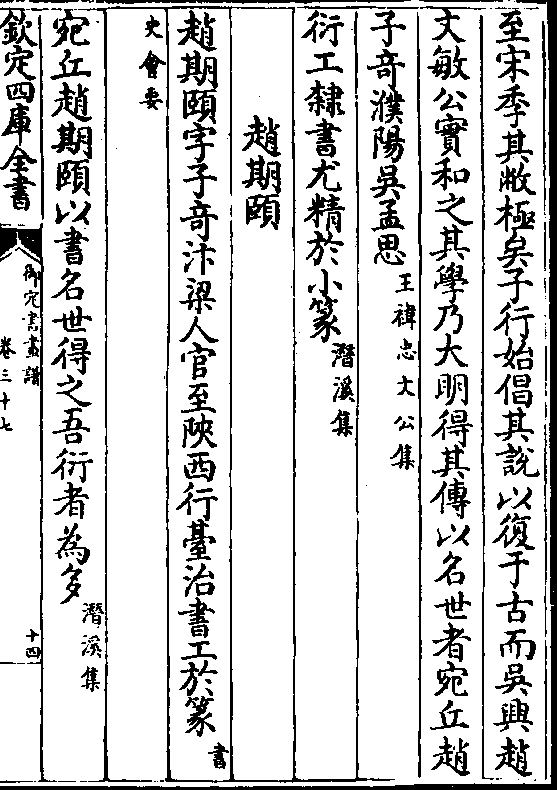 至宋季其敝極矣子行始倡其說以復于古而吳興趙
文敏公實和之其學乃大明得其傳以名世者宛丘趙
子竒濮陽吳孟思王禕忠文公集
衍工隸書尤精於小篆潛溪集
趙期頤
趙期頤字子竒汴梁人官至陝西行臺治書工於篆書
史會要
宛丘趙期頤以書名世得之吾衍者為多潛溪集
欽定四庫全書
御定書畫譜
卷三十七
十四